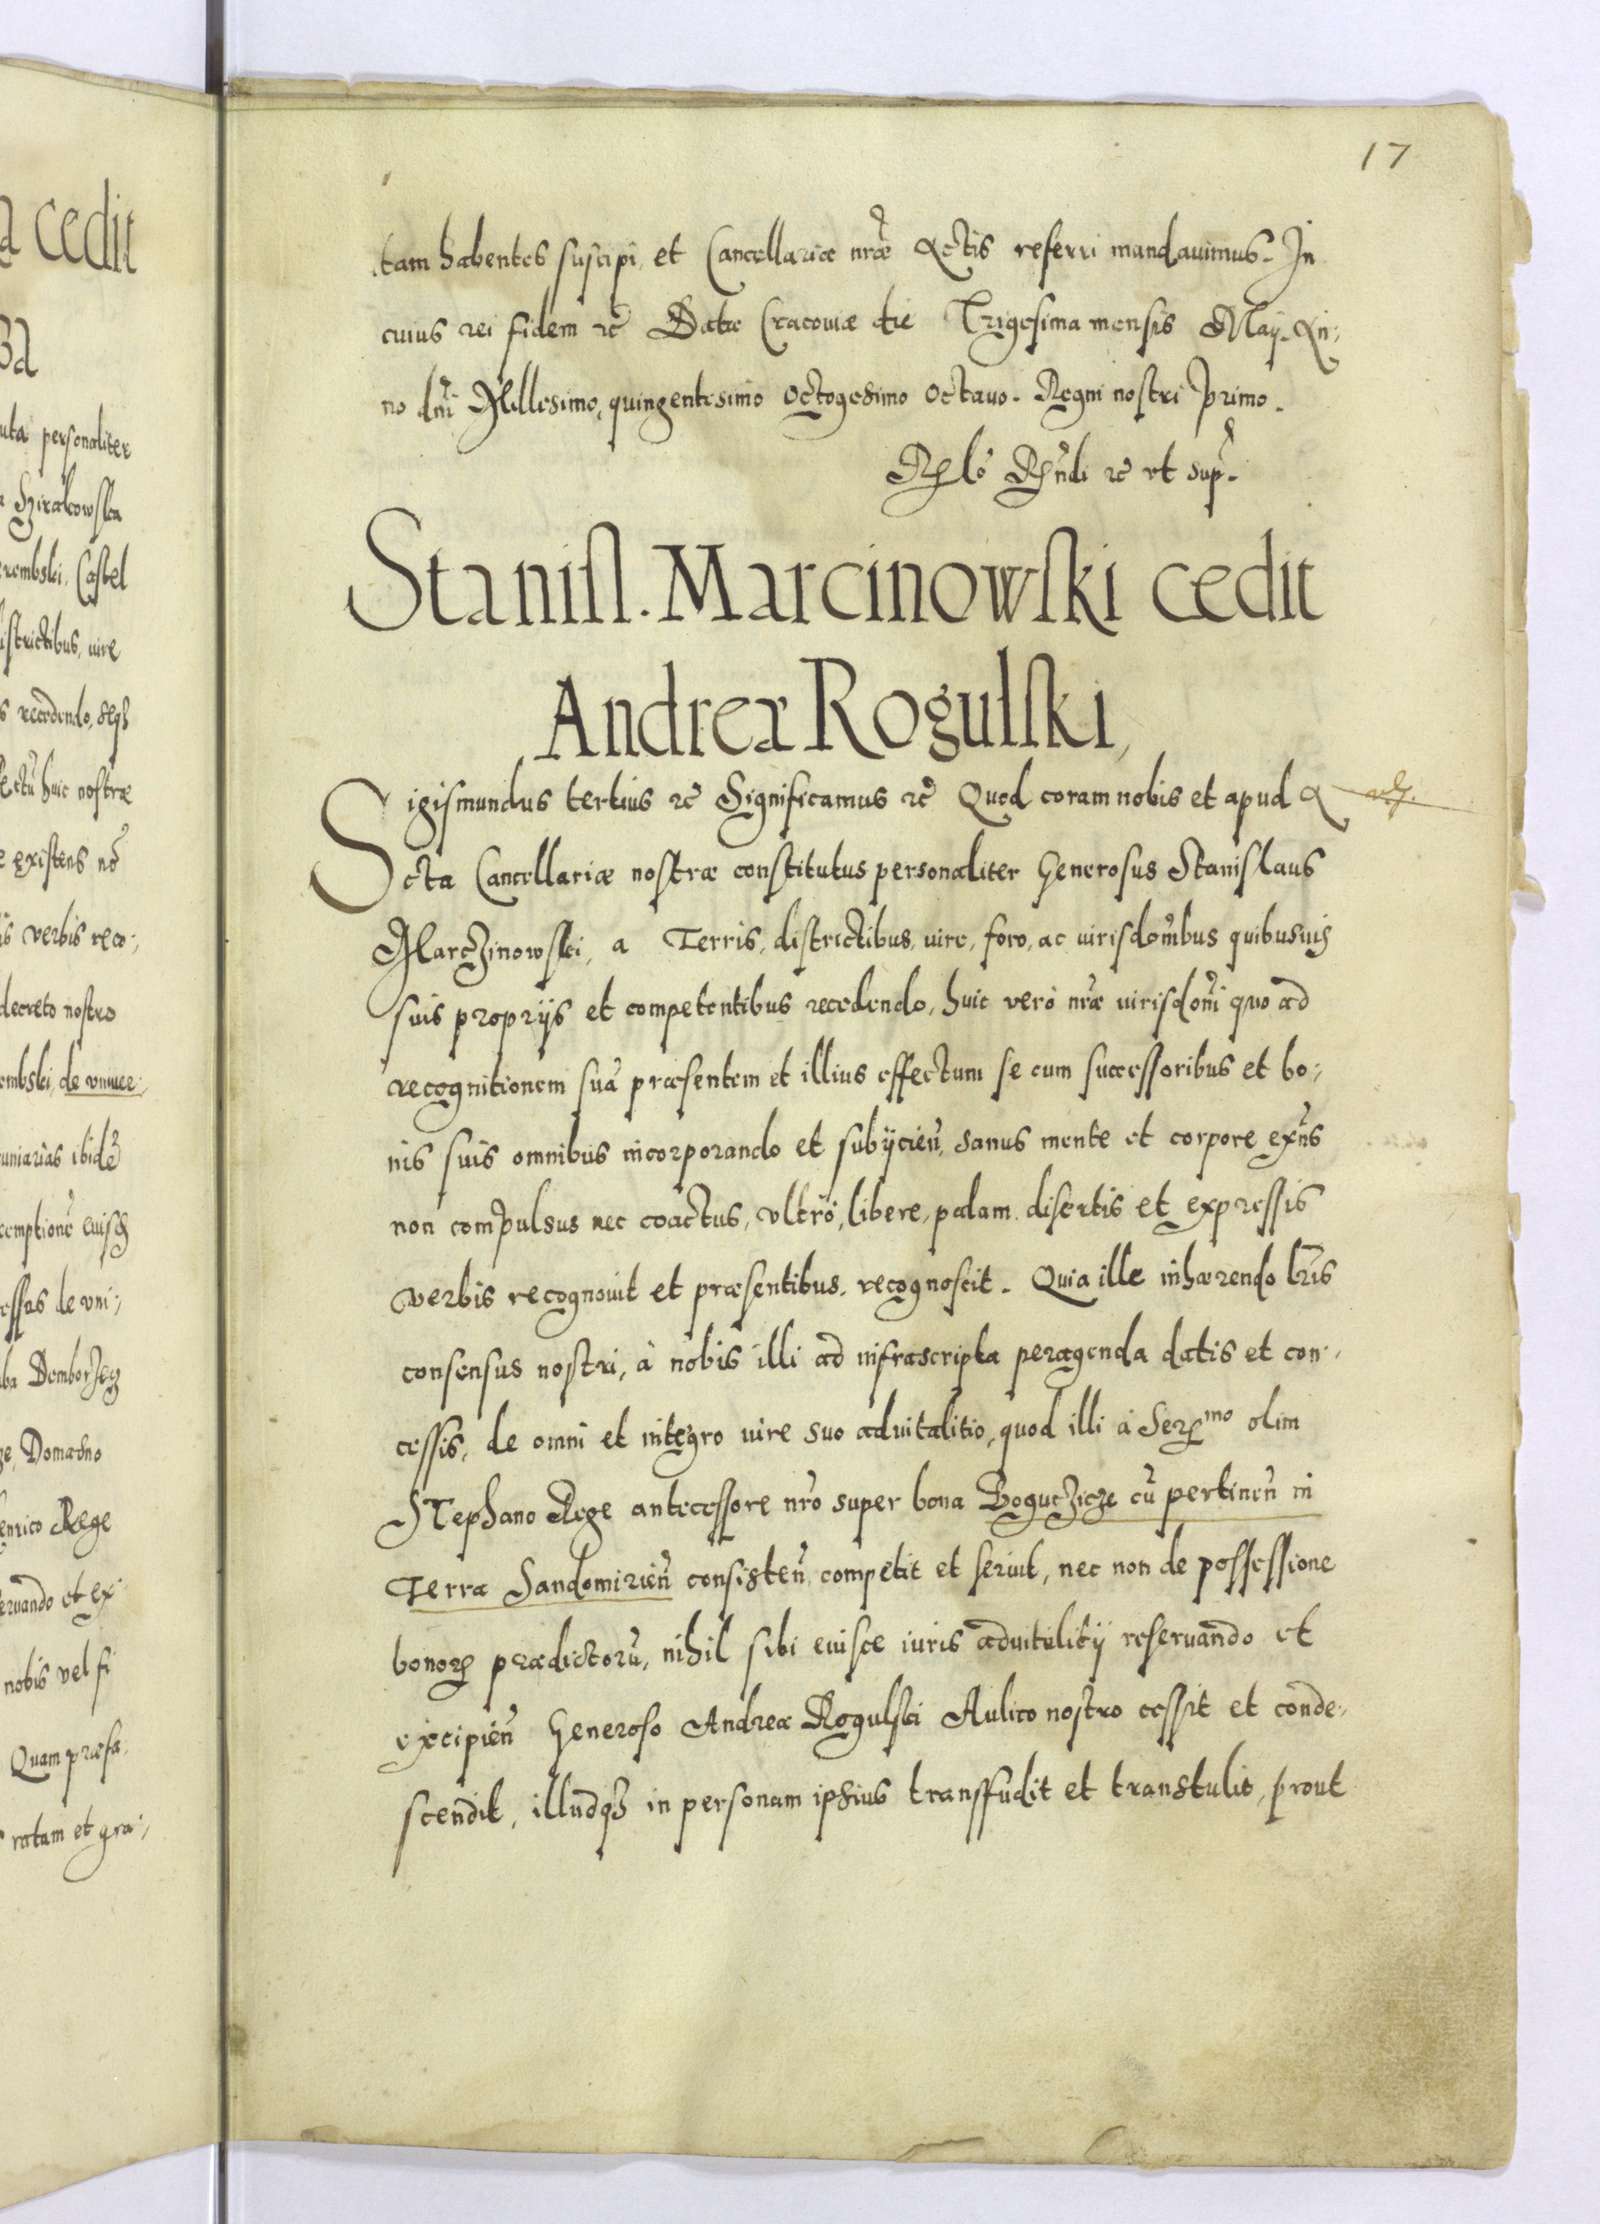 a cedit
uta personaliter
Castel
istrictibus, iure
s recedendo,
huic nostræ
e existens nō
is verbis reco:,
decreto nostro
ombski, de vniuer:,
cuniarias ibidē
essas de vni:,
Domacħo
enrico Rege
eruando et ex:
nobis vel si
Quam præfa:
ratam et gra:,
17
tam habentes suscipi, et Cancellariæ nræ Actis referri mandauimus. In
cuius rei fidem rc̄ Datæ Cracouiæ die Trigesima mensis Maij. An:
no dnī Millesimo, quingentesimo Octogesimo Octauo. Regni nostri Primo.
rc̄ vt sup.
Stanisl. Marcinowski cedit
Andreæ Rogulski,
Sigismundus tertius rc̄ Significamus rc̄ Quod coram nobis et apud A
cta Cancellariæ nostræ constitutus personaliter Generosus Stanislaus
Marczinowski, a Terris, districtibus, iure, foro, ac iurisdōmbus quibusuis
suis proprijs et competentibus recedendo, huic verò nræ iurisdōni quo ad
recognitionem suā præsentem et illius effectum se cum successoribus et bo:,
nis suis omnibus incorporando et subijcien̄, sanus mente et corpore exn̄s
non compulsus nec coactus, vltrò, libere, palam, disertis et expressis
verbis recognouit et præsentibus, recognoscit. Quia ille inhærendo lr̄is
consensus nostri, à nobis illi ad infrascripta peragenda datis et con:,
cessis, de omni et integro iure suo aduitalitio, quod illi à Ser^mo olim
Stephano Rege antecessore nr̄o super bona Boguczicze cū pertinen̄ in
Terra Sandomirien̄ consisten̄ competit et seruit, nec non de possessione
bonorꝝ prædictorū, nihil sibi eiusce iuris aduitalitij reseruando et
excipien̄ Generoso Andreæ Rogulski Aulico nostro cessit et conde:,
scendit, illudqꝫ in personam ipsius transffudit et transtulit, prout